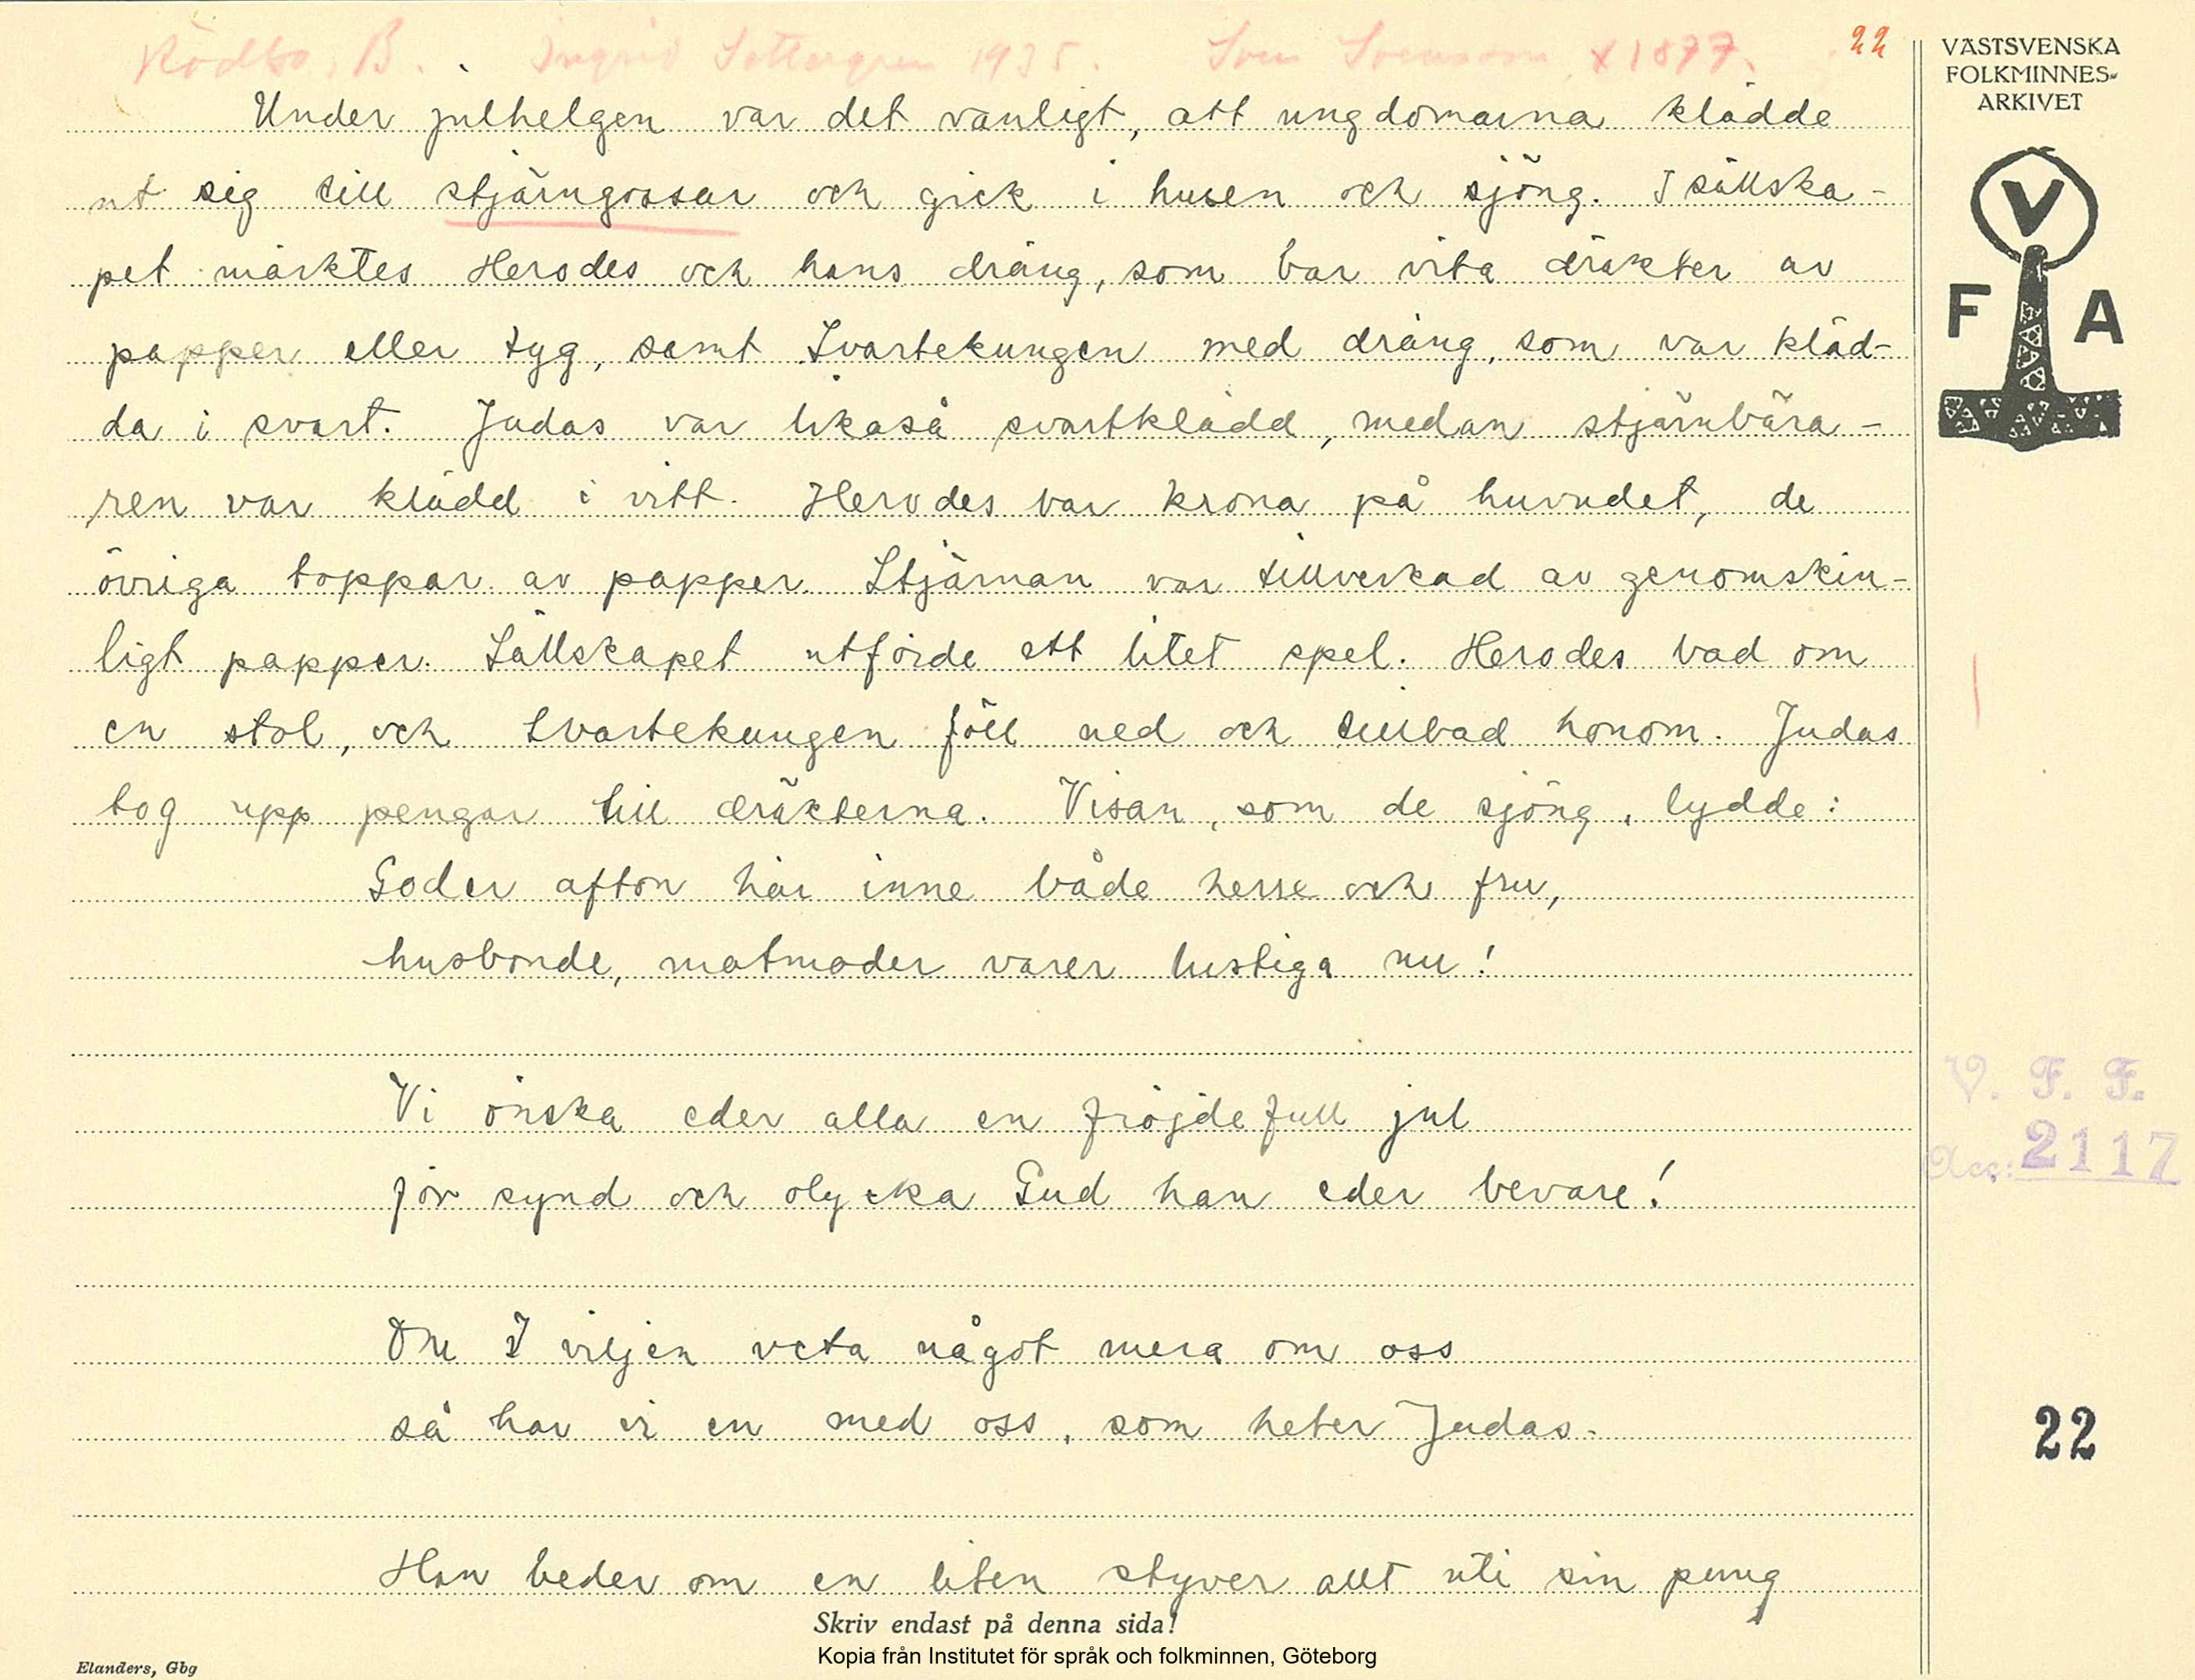 Rödbo, B. Ingrid Settergren 1935. Sven Svensson, f 1877. 22
VÄSTSVENSKA
FOLKMINNES-
ARKIVET
V
F A
Under julhelgen var det vanligt, att ungdomarna klädde
ut sig till stjärngossar och gick i husen och sjöng. I sällska-
pet märktes Herodes och hans dräng, som bar vita dräkter av
papper eller tyg, samt Svartekungen med dräng, som var kläd-
da i svart. Judas var likaså svartklädd, medan stjärnbära-
ren var klädd i vitt. Herodes bar krona på huvudet, de
övriga toppar av papper. Stjärnan var tillverkad av genomskin-
ligt papper. Sällskapet utförde ett litet spel. Herodes bad om
en stol, och Svartekungen föll ned och tillbad honom. Judas
tog upp pengar till dräkterna. Visan, som de sjöng, lydde:
Goder afton här inne både herre och fru,
husbonde, matmoder varer lustiga nu!
Vi önska eder alla en fröjdefull jul
för synd och olycka Gud han eder bevare!
V. F. F.
Acc: 2117
Om I viljen veta något mera om oss
så har vi en med oss, som heter Judas.
22
Han beder om en liten styver allt uti sin pung
Skriv endast på denna sida!
Kopia från Institutet för språk och folkminnen, Göteborg
Elanders, Gbg